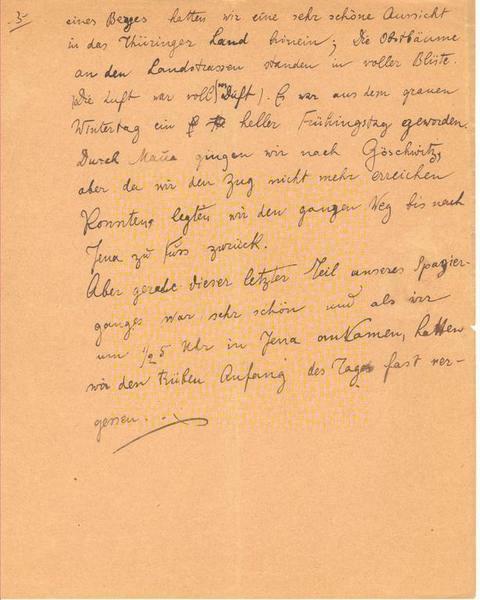 5
eines Berges hatten wir eine sehr schöne Aussicht
in das Thüringer Land hinein; Die Obstbäume
an den Landstrassen standen in voller Blüte.
Die Luft war voll (von Duft). Es war aus dem grauen
Wintertag ein heller Frühingstag geworden.
Durch Maua gingen wir nach Göschwitz,
aber da wir den Zug nicht mehr erreichen
Konnten, legten wir den ganzen Weg bis nach
Jena zu Fuss zurück.
Aber gerade dieser letzter Teil unseres Spazier-
ganges war sehr schön und als wir
um 1/2 5 Uhr in Jena anKamen, hatten
wir den trüben Anfang des Tages fast ver-
gessen.